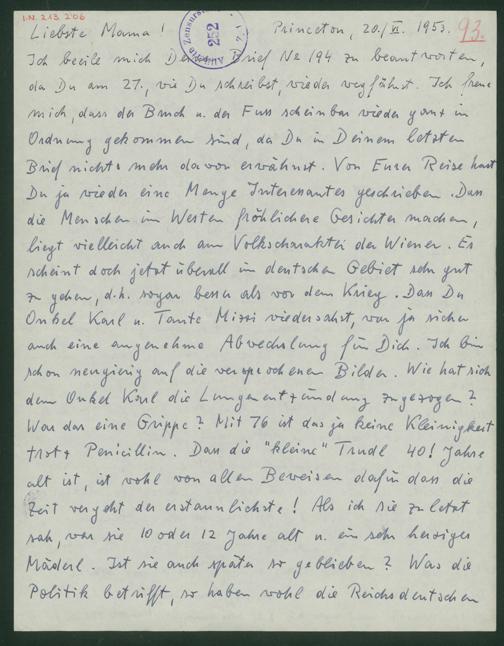 I.N. 213.206
Liebste Mama! Princeton, 20./VI. 1953.
93.
252
Ich beeile mich Deinen Brief No 194 zu beantworten,
da Du am 27., wie Du schreibst, wieder wegfährst. Ich freue
mich, dass der Bruch u. der Fuss scheinbar wieder ganz in
Ordnung gekommen sind, da Du in Deinem letzten
Brief nichts mehr davon erwähnst. Von Eurer Reise hast
Du ja wieder eine Menge Interessantes geschrieben. Dass
die Menschen im Westen fröhlichere Gesichter machen,
liegt vielleicht auch am Volkscharakter der Wiener. Es
scheint doch jetzt überall im deutschen Gebiet sehr gut
zu gehen, d.h. sogar besser als vor dem Krieg. Dass Du
Onkel Karl u. Tante Mizzi wiedersahst, war ja sicher
auch eine angenehme Abwechslung für Dich. Ich bin
schon neugierig auf die versprochenen Bilder. Wie hat sich
denn Onkel Karl die Lungenentzündung zugezogen?
War das eine Grippe? Mit 76 ist das ja keine Kleinigkeit
trotz Penicillin. Dass die "kleine" Trudl 40! Jahre
alt ist, ist wohl von allen Beweisen dafür dass die
Zeit vergeht der erstaunlichste! Als ich sie zuletzt
sah, war sie 10 oder 12 Jahre alt u. ein sehr herziges
Mäderl. Ist sie auch später so geblieben? Was die
Politik betrifft, so haben wohl die Reichsdeutschen